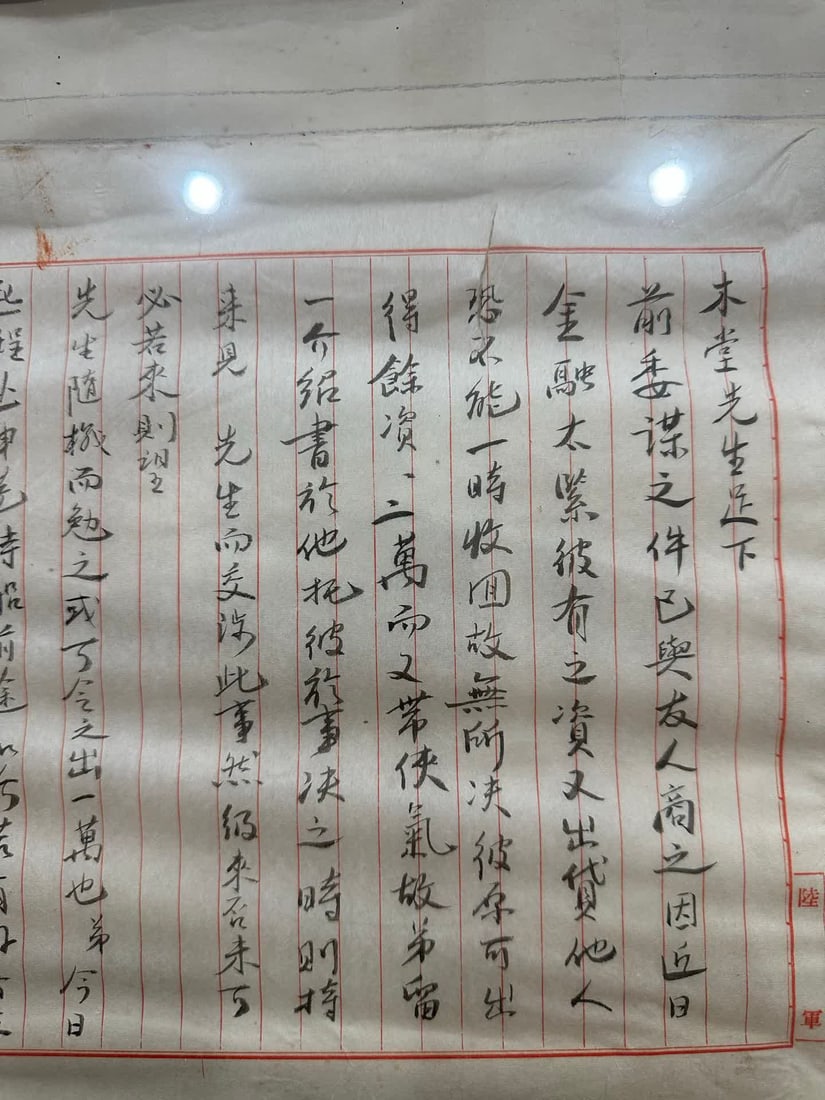 木堂先生足下
前委謀之件已與友人商之因近日
金融太緊彼有之資又出貸他人
恐不能一時收回故無所决彼原可出
得餘資一二萬而又帶俠氣故弟留
一介紹書於他托彼於事决之時則持
来見 先生而交涉此事然彼來否未可
必若來則望
先生隨機而勉之或可令之出一萬也弟今日
起程
前途
陸
軍